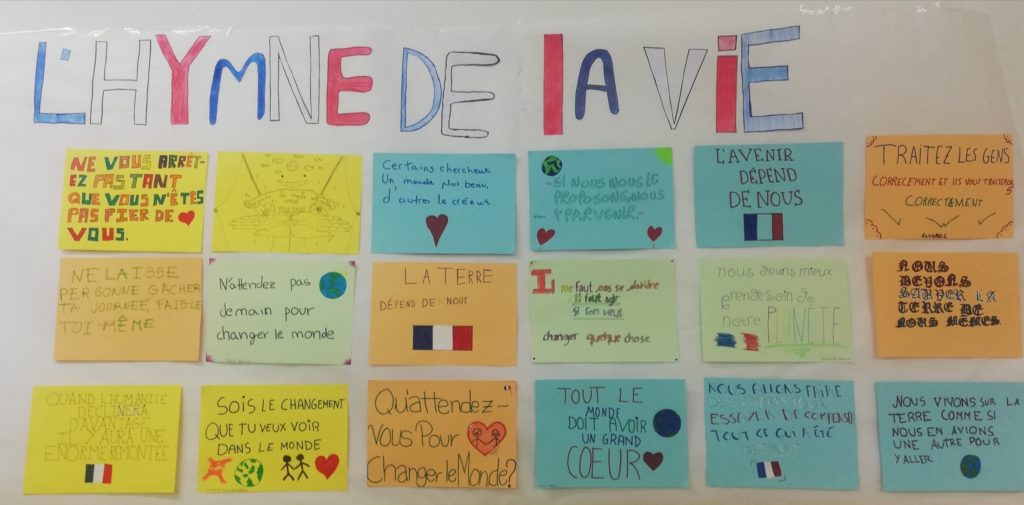 L'HYMNE DE LA VIE
NE VOUS ARRÊT-
EZ PAS TANT
QUE VOUS N'ÊTES
PAS FIER DE
VOUS.
Certains cherchent
Un monde plus beau,
d'autre le créent
-SI NOUS NOUS LE
PROPOSONS, NOUS
Y PARVENIR.-
L'AVENIR
DÉPEND
DE NOUS
TRAITEZ LES GENS
CORRECEMENT ET ILS VOUS TRAITERONS
CORRECTEMENT
NE LAISSE
PERSONNE GÂCHER
TA JOURNÉE, FAIS-LE
TOI-MÊME
N'attendez pas
demain pour
changer le monde
LA TERRE
DÉPEND DE NOUS
Il ne faut pas se plaindre
Il faut agir
si l'on veut
changer quelque chose
nous devons mieux
prendre soin de
notre PLANÈTE
NOUS
DEVONS
SAUVER LA
TERRE DE
NOUS MÊMES
QUAND L'HUMANITÉ
DECLINERA
D'AVANTAGE
IL Y AURA UNE
ENORME REMONTÉE
SOIS LE CHANGEMENT
QUE TU VEUX VOIR
DANS LE MONDE
Qu'attendez-
Vous Pour
Changer le Monde?
TOUT LE
MONDE
DOIT AVOIR
UN GRAND
COEUR
NOUS FAIRE
ESSAYER DE COMPENSER
TOUT CE QUI A ÉTÉ
NOUS VIVONS SUR LA
TERRE COMME SI
NOUS EN AVIONS
UNE AUTRE POUR
Y ALLER.